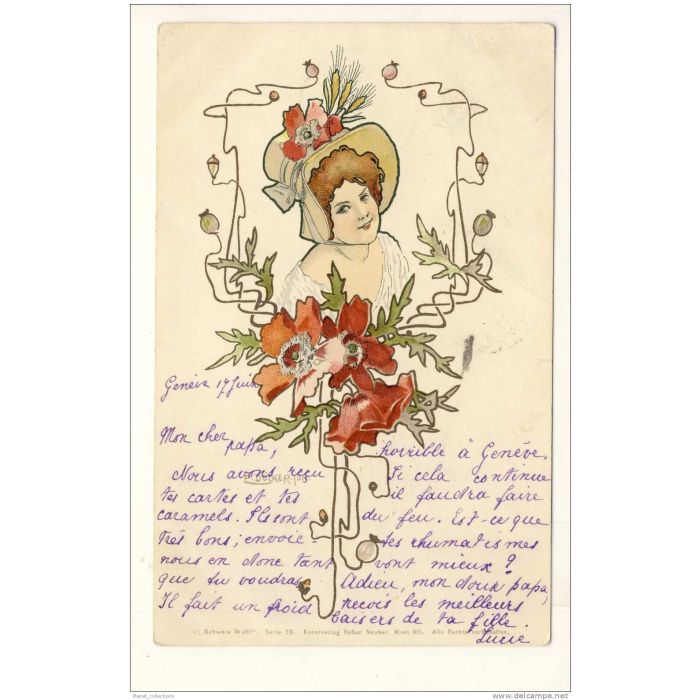 Genève 17 Juin
Mon cher
papa,
Nous avons reçu
tes cartes et tes
caramels. Ils sont
très bons; envoie-
nous en donc tant
que tu voudras
Il fait un froid
horrible à Genève.
Si cela continue
il faudra faire
du feu. Est-ce que
tes rhumatismes
vont mieux ?
Adieu, mon doux papa,
reçois les meilleurs
baisers de ta fille.
Lucie
Serie 28. Kunstverlag Rafael Neuber, Wien VII. Alle Rechte vorbehalten.
Planet_collections
www.delcampe.net